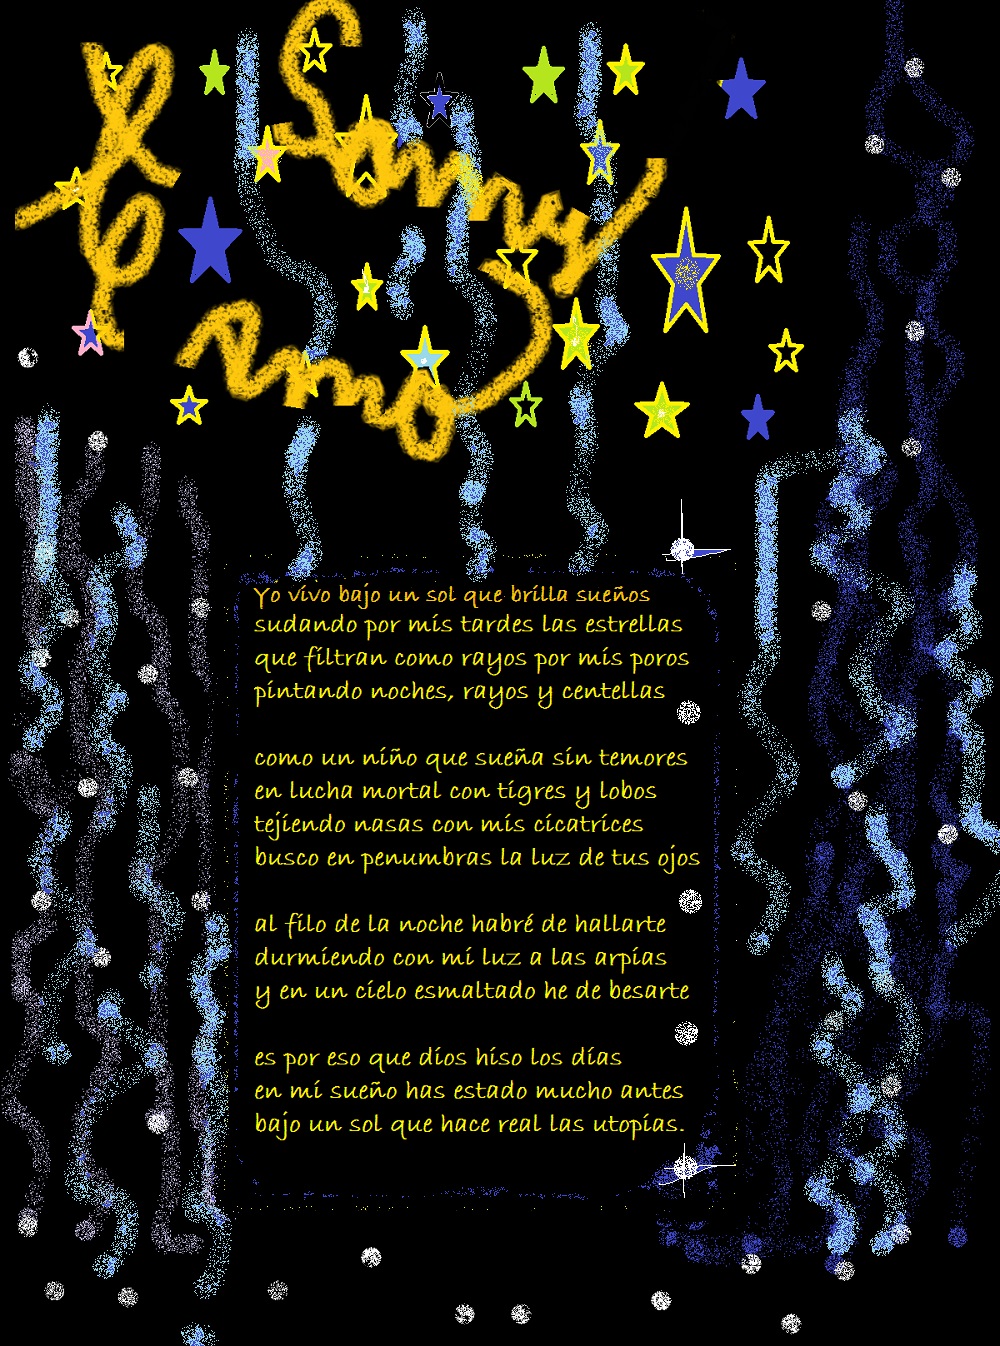 Yo vivo bajo un sol que brilla sueños
sudando por mis tardes las estrellas
que filtran como rayos por mis poros
pintando noches, rayos y centellas
como un niño que sueña sin temores
en lucha mortal con tigres y lobos
tejiendo nasas con mis cicatrices
busco en penumbras la luz de tus ojos
al filo de la noche habré de hallarte
durmiendo con mi luz a las arpías
y en un cielo esmaltado he de besarte
es por eso que dios hiso los días
en mi sueño has estado mucho antes
bajo un sol que hace real las utopías.